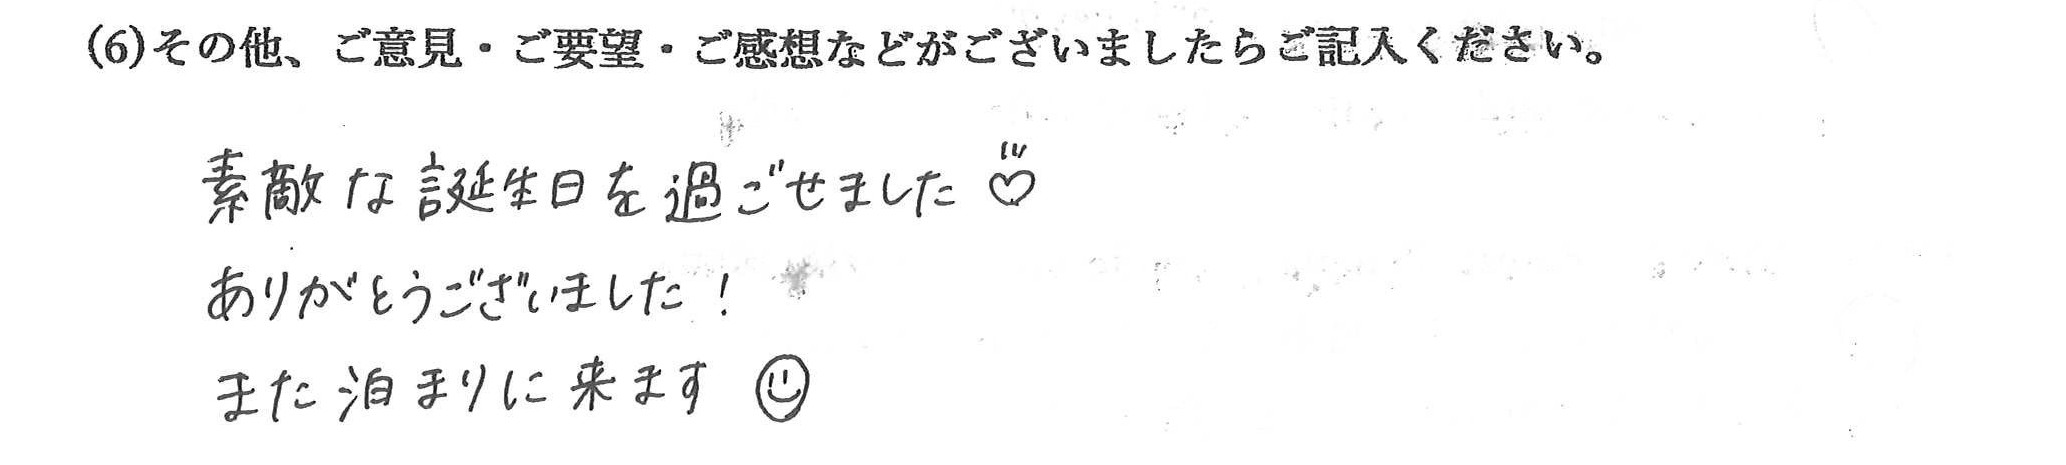 (6)その他、ご意見・ご要望・ご感想などがございましたらご記入ください。
素敵な誕生日を過ごせました♡
ありがとうございました！
また泊まりに来ます☺